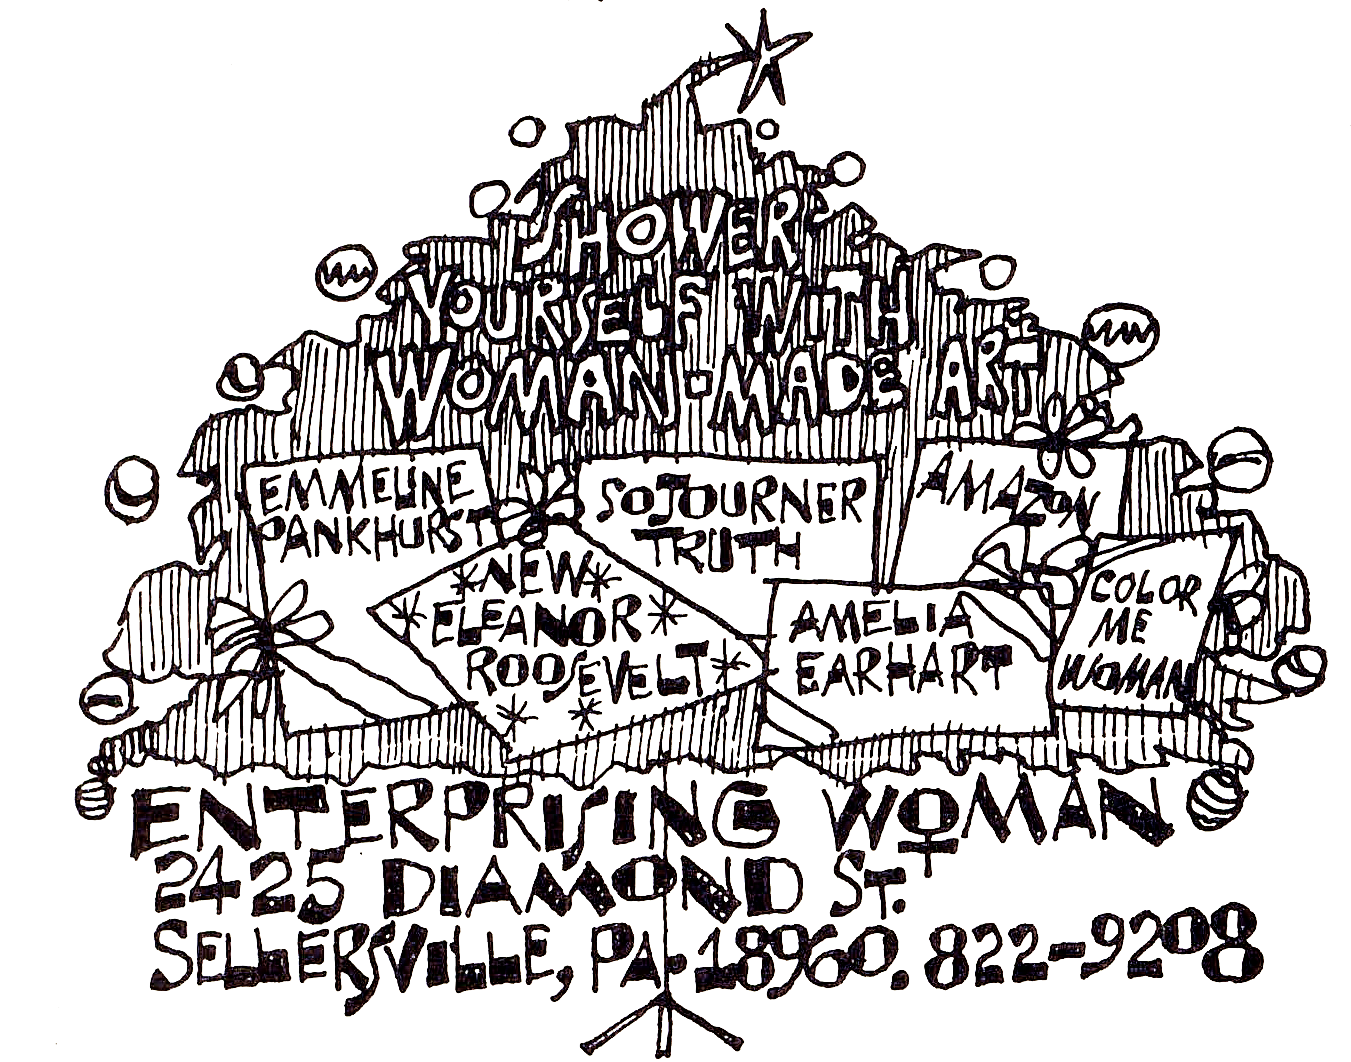 SHOWER
YOURSELF WITH
WOMAN-MADE ART
EMMELINE
PANKHURST
SOJOURNER
TRUTH
AMAZON
*NEW*
*ELEANOR*
ROOSEVELT*
AMELIA
EARHART
COLOR
ME
WOMAN
ENTERPRISING WOMAN
2425 DIAMOND ST.
SELLERSVILLE, PA. 18960. 822-9208